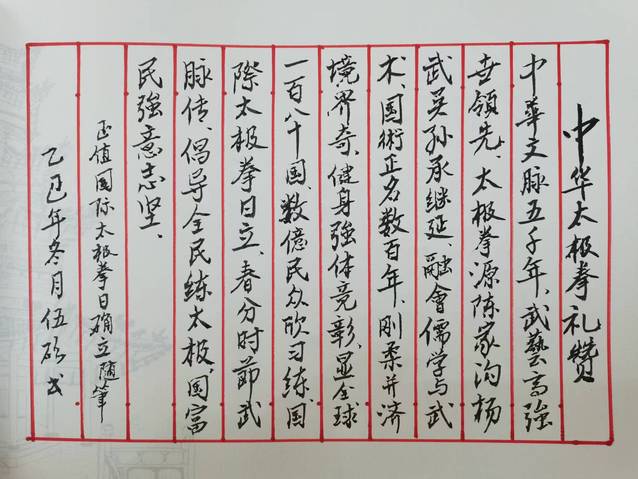 中华太极拳礼赞
中華文脉五千年、武藝高强
世領先、太极拳源陈家沟杨
武吴孙承继延、融會儒学与武
术、国術正名数百年、刚柔并济
境界奇、健身強体竞彰、显全球
一百八十国、数億民众欣习練、国
際太极拳日立、春分时節武
脉传、倡导全民练太极、国富
民強意志坚、
正值国际太极拳日确立随筆
乙巳年冬月伍砺书